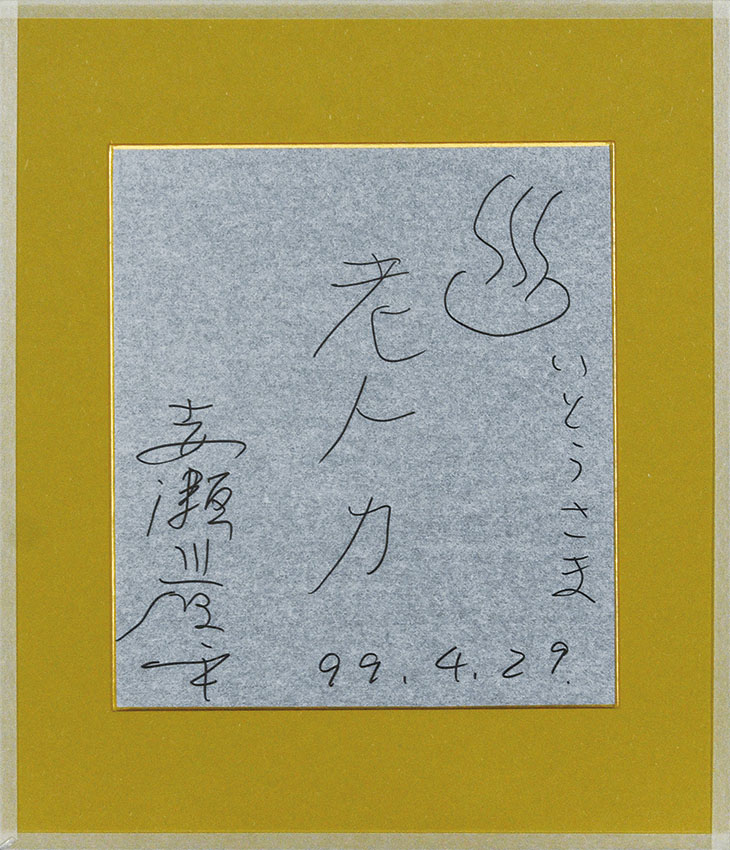 いとうさま
老人力
99.4.29.
赤瀬川原平